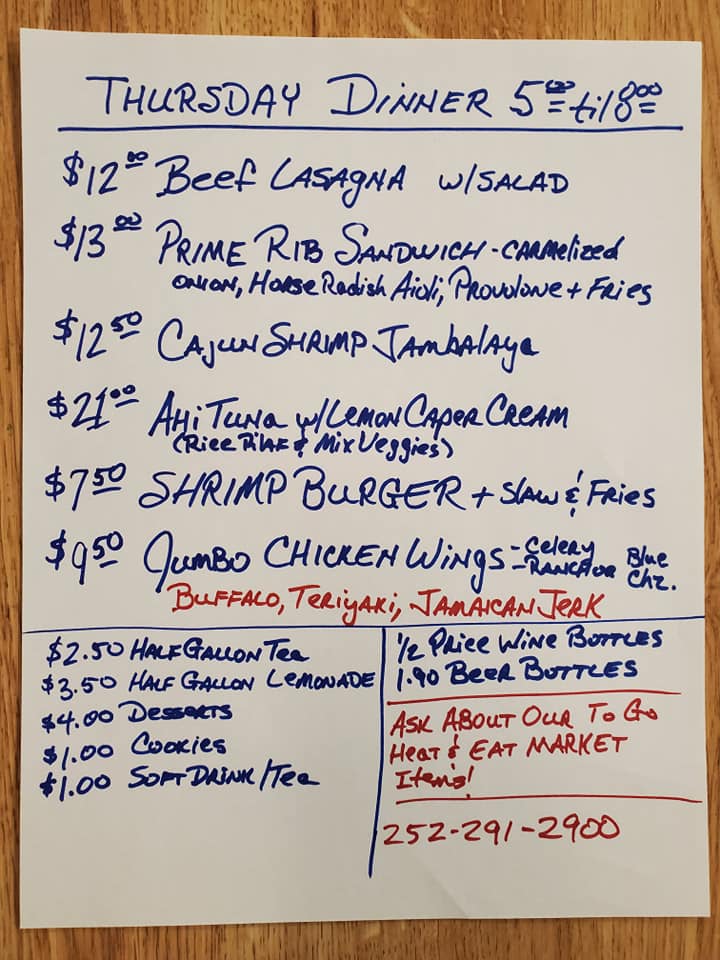 THURSDAY DINNER 5:00 til 8:00
$12.00 Beef LASAGNA w/SALAD
$13.00 PRIME RIB SANDWICH - CARMElized
ONION, HORSE Radish Aioli, PROVOLONE + FRIES
$12.50 CAJUN SHRIMP JAMbALAYA
$21.00 AHi TUNA w/LEMON CAPER CREAM
(RICE PILAF & Mix Veggies)
$7.50 SHRIMP BURGER + SLAW & FRIES
$9.50 JUMBO CHICKEN WINGS - Celery
- RANCH OR Blue Chz.
BUFFALO, TERiYAKi, JAMAICAN JERK
$2.50 HALF GALLON TEA
$3.50 HALF GALLON LEMONADE
$4.00 DESSERTS
$1.00 COOKIES
$1.00 SOFT DRINK/TEA
1/2 PRICE WINE BOTTLES
1.90 BEER BOTTLES
ASK ABOUT OUR TO GO
HEAT & EAT MARKET
Items!
252-291-2900